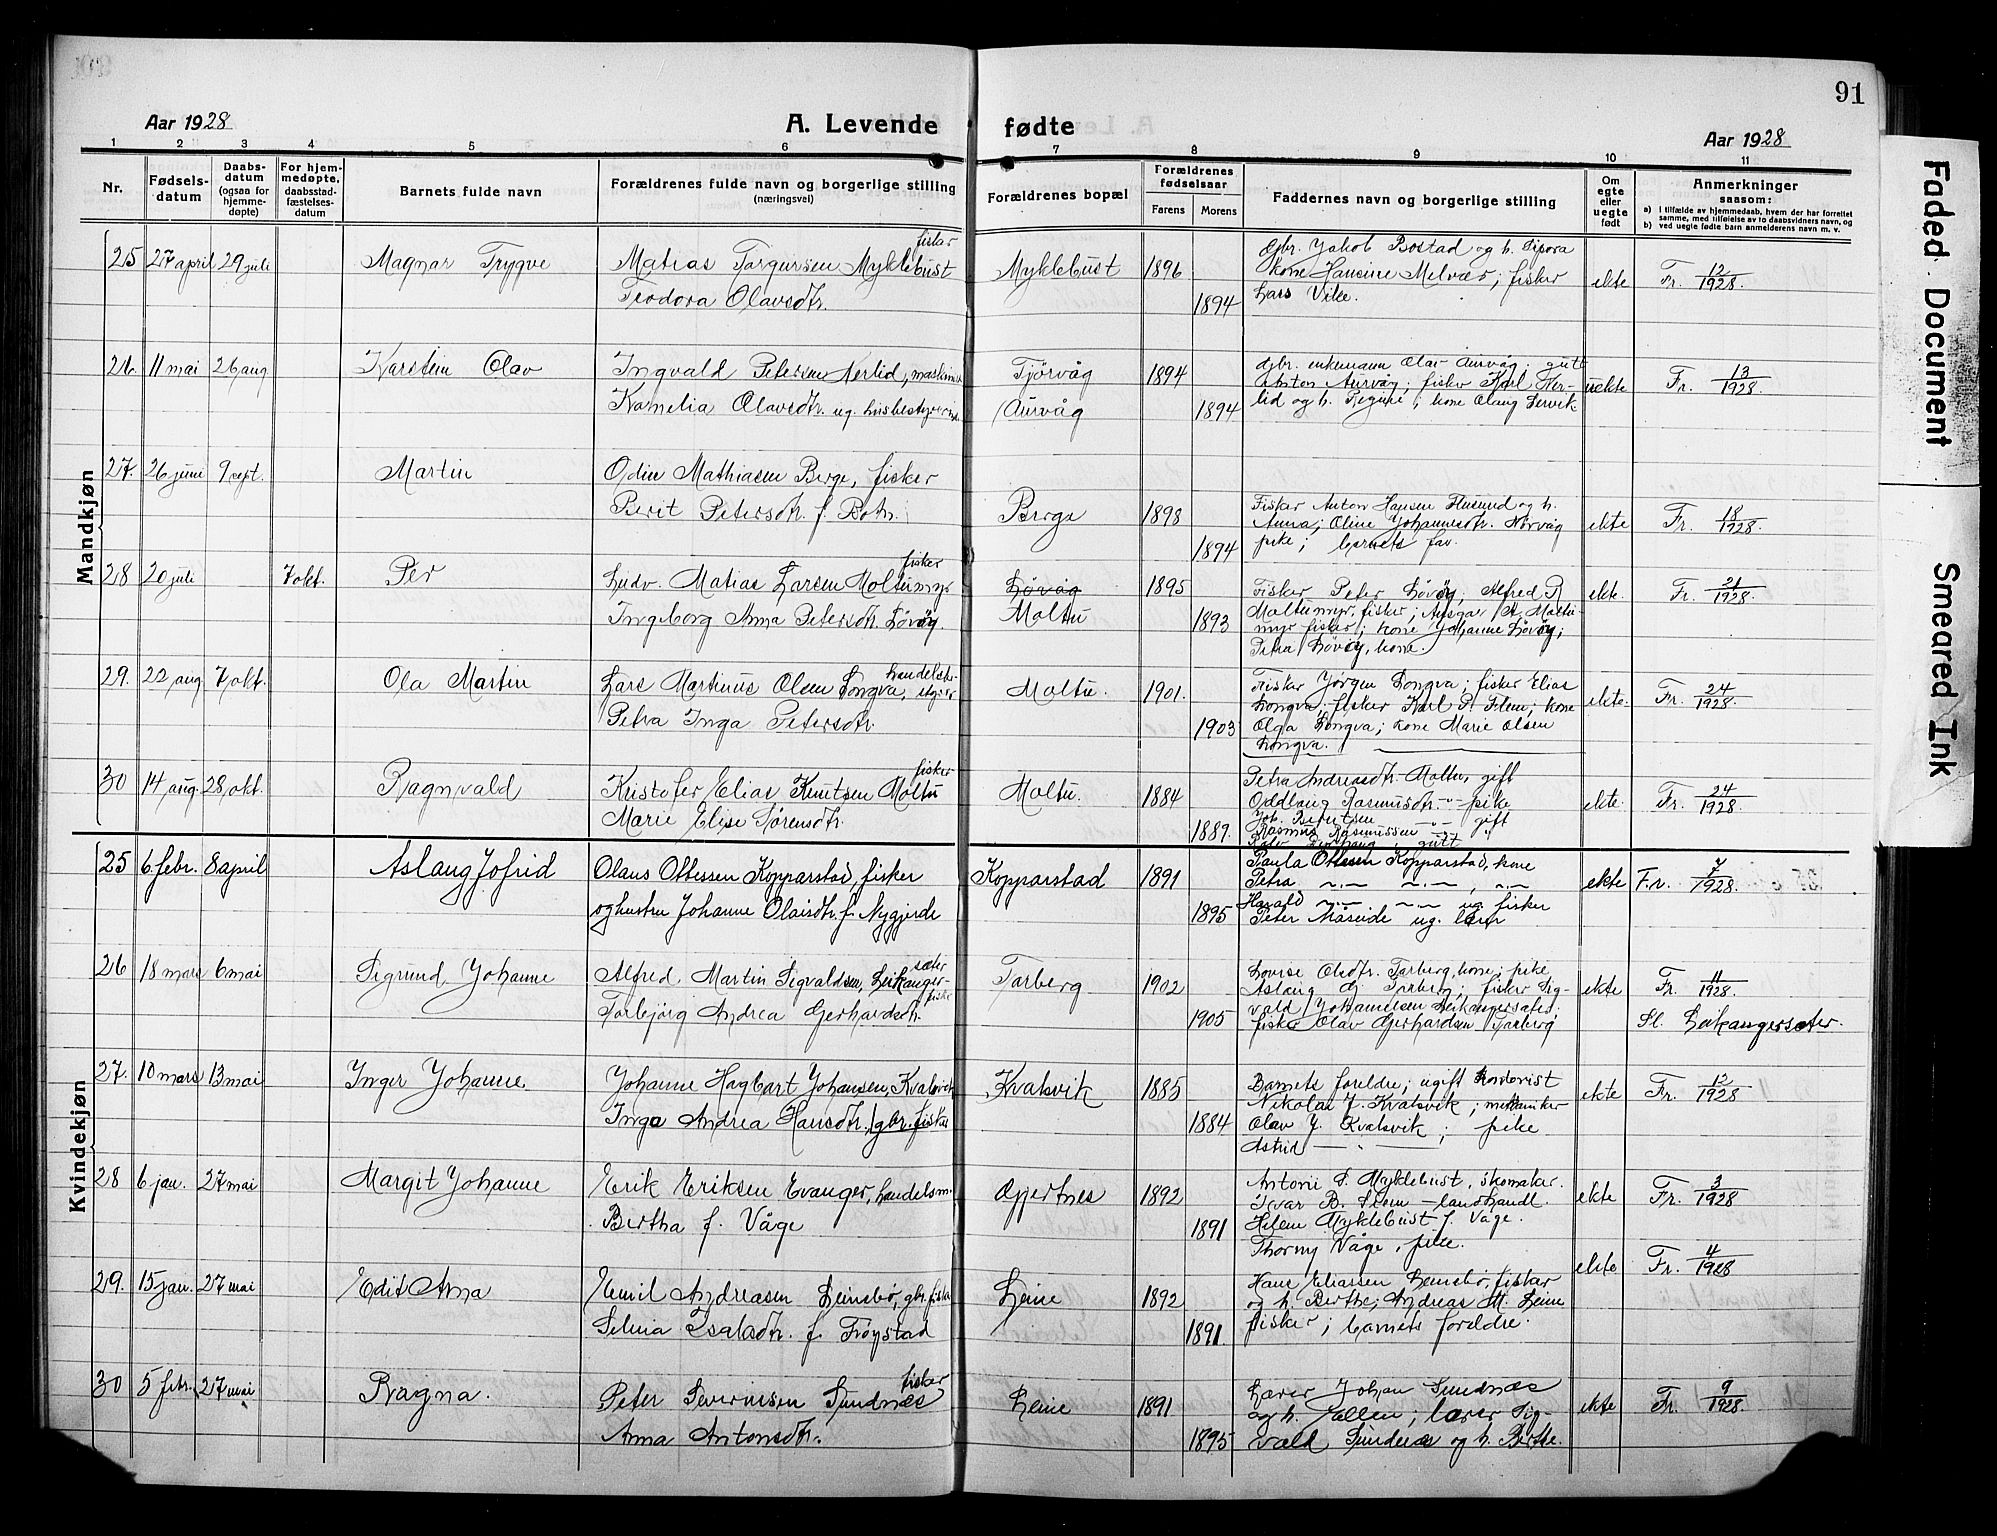 91
Aar 1928
A. Levende fødte
Aar 1928
1 2 3 4 5 6 7 8 9 10 11
Nr.
Fødsels-
datum
Daabs-
datum
(ogsaa for
hjemme-
døpte)
For hjem-
medøpte.
daabsstad-
fæstelses-
datum
Barnets fulde navn
Forældrenes fulde navn og borgerlige stilling
(næringsvei)
Forældrenes bopæl
Forældrenes
fødselsaar
Farens
Morens
Faddernes navn og borgerlige stilling
Om
egte
eller
uegte
født
Anmerkninger
saasom:
a) i tilfælde av hjemmedaab, hvem der har forrettet
samme, med tilføielse av to daabsvidners navn, og
b) ved uegte fødte barn anmelderens navn m. v.
Mandkjøn
25 27 april 29 juli Magnar Trygve
fisker
Matias Torgersen Myklebust
Teodora Olavsdtr.
Myklebust 1896
1894
Gbr. Jakob Bostad og h. Sipora
kone Hansine Melvær; fisker
Lars Vike.
ekte Fr. 12/1928.
26. 11 mai 26, aug Karstein Olav
Ingvald Petersen Nerlid, maskinist
Kornelia Olavsdtr. ug.
Tjörvåg
Aurvåg
1894
1894
gbr. enkemann Olav Aurvåg; gutt
Anton Aurvåg; fisker Karl Ner-
lid og h. Regine; kone Olaug Servik
uekte Fr. 13/1928.
27. 26 juni 9 sept. Martin
Odin Mathiasen Berge, fisker
Berit Petersdtr. f. Botn.
Berge 1898
1894
Fisker Anton Hansen Husund og h.
Anna; Oline Johannesdtr. Nörvåg
pike; barnets far.
ekte Fr. 18/1928.
28 20 juli 7 okt. Per
fisker
Ludv. Matias Larsen Moltumyr
Ingeborg Anna Petersdtr. Lövöy.
Lövåg
Moltu
1895
1893
Fisker Peter Lövöy; Alfred R
Moltumyr, fisker; Ansgar R. Moltu-
myr fisker; kone Johanne Lövöy;
Petra Lövöy, kone.
ekte. Fr. 21/1928.
29. 22, aug 7, okt. Ola Martin
Lars Martinus Olsen Longva, handelsbe-
styrer
Petra Inga Petersdtr.
Moltu. 1901.
1903
Fisker Jörgen Longva; fisker Elias
Longva; fisker Karl P. Flem; kone
Olga Longva; kone Marie Olsen
Longva.
ekte. Fr. 24/1928.
30 14, aug. 28, okt. Ragnvald
fisker
Kristofer Elias Knutsen Moltu
Marie Elise Sörensdtr.
Moltu. 1884
1889.
Petra Andreasdtr. Moltu, gift
Oddlaug Rasmusdtr. -"- pike
Joh. Berntsen -"- gift
Rasmus Rasmussen -"- "
ekte. Fr. 24/1928.
Kvindekjøn
25 6 febr. 8 april Aslaug Jofrid
Olaus Ottessen Kopparstad, fisker
og hustru Johanne Olaisdtr. f. Nygjerde
Kopparstad 1891
1895
Paula Ottesen Kopparstad, kone
Petra -"- -"-, -"-
Harald -"- -"- ug. fisker
Peter Måseide ug. lærer
ekte F.r. 7/1928.
26 18 mars 6 mai Sigrund Johanne
Alfred Martin Sigvaldsen, Leikanger-
sæter
fiske
Torbjörg Andrea Gerhardsdtr.
Tarberg 1902
1905
Lovise Olsdtr. Tarberg, kone; pike
Aslaug G. Tarberg; fisker Sig-
vald Johannesen Leikangersæter;
fisker Olav Gerhardsen Tarberg
ekte Fr. 11/1928.
Sl. Leikangersæter.
27. 10 mars 13 mai Inger Johanne
Johanne Hagbart Johansen, Kvalsvik
Inga Andrea Hansdtr. gbr. fisker
Kvalsvik 1885
1884
Barnets foreldre; ugift
Nikolai J. Kvalsvik; mekaniker
Olav J. Kvalsvik; pike
Astrid — " —
ekte Fr. 12/1928
28 6 jan. 27 mai Margit Johanne
Erik Eriksen Evanger, handelsm.
Bertha f. Våge
Gjertnes 1892
1891
Antoni S. Myklebust, skomaker.
Ivar B. Stem — landhandl.
Helene Myklebust f. Våge.
Thorny Våge, pike.
ekte Fr. 3/1928
29. 15 jan. 27 mai Edit Anna
Emil Andreasen Leinebö, gbr. fisker
Selma Isaksdtr. f. Fröystad
Leine 1892
1891.
Hans Eliassen Leinebö, fisker
og h. Berthe; Andreas M. Leine
fisker; barnets foreldre.
ekte Fr. 4/1928
30 5 febr. 27 mai Ragna.
fisker
Peter Severinsen Sundnæs
Anna Antonsdtr.
Leine 1891
1895
Lærer Johan Sundnæs
og h. Jallen; lærer Sig-
vald Sundnæs og h. Berthe.
ekte Fr. 9/1928.
Faded Document
Smeared Ink